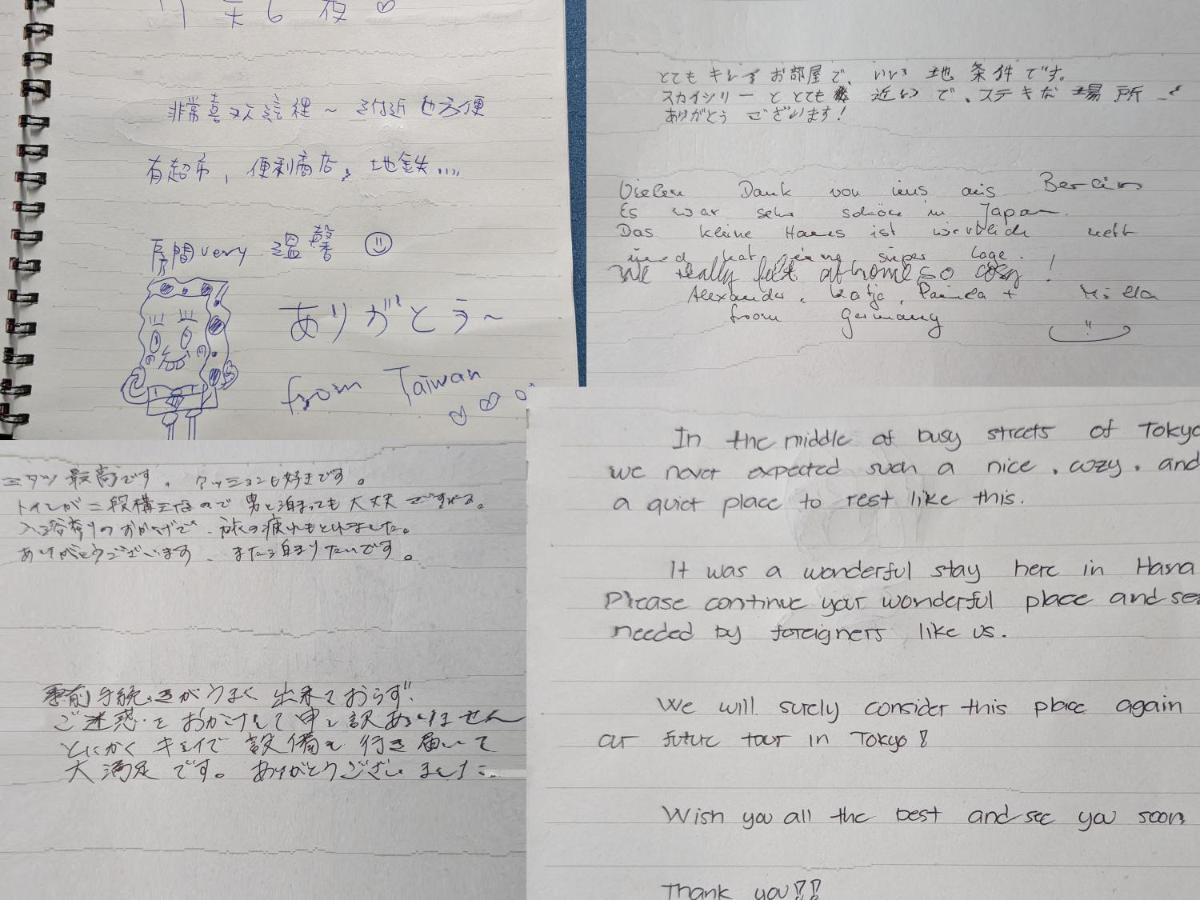 非常喜歡這裡~ 附近也方便
有超市，便利商店、地鉄....
房間very 温馨
ありがとう~
from Taiwan
とても キレイ お部屋で、いい 地 条件です。
スカイシリーと とても 近いで、ステキだ 場所
ありがとう ございます!
Vielen Dank von uns aus Berlin
Es war sehr schön in Japan.
Das kleine Haus ist wirklich nett
und hat eine super Lage.
We really felt at home so cosy!
Alexander, Katja, +
from Germany
最高です。クッションも好きです。
トイレが二段構えなので 男と泊まっても大丈夫
のおかげで、旅の疲れもとれました。
ありがとうございます、また泊まりたいです。
事前手続きがうまく出来ておらず、
ご迷惑をおかけして申し訳ありません
とにかくキレイで設備も行き届いて
大満足です。ありがとうございました
In the middle of busy streets of Tokyo
we never expected such a nice, cozy, and
a quiet place to rest like this.
It was a wonderful stay here in Hana
Please continue your wonderful place and
needed by foreigners like us.
We will surely consider this place again
our future tour in Tokyo!
Wish you all the best and see you soon
Thank you!!